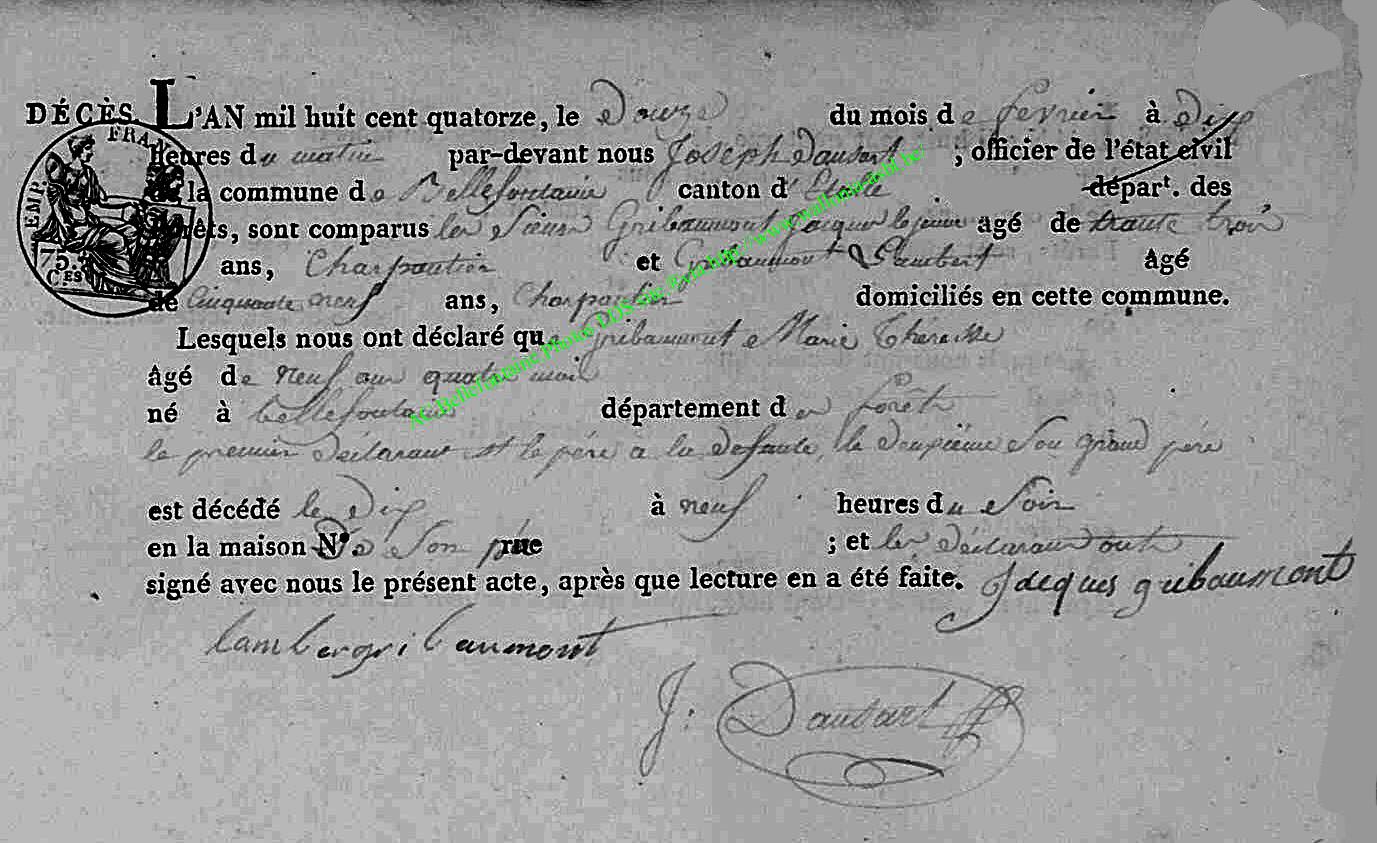 DÉCÈS. L'AN mil huit cent quatorze, le Douze du mois de fevrier à Dix
heures du matin par-devant nous Joseph Dausart, officier de l'état civil
de la commune de Bellefontaine canton d'Etalle départ. des
forêts, sont comparus les Sieurs Gribaumont Jacques le jeune agé de trente trois
ans, Charpentier et Gribaumont Lambert âgé
de Cinquante neuf ans, Charpentier domiciliés en cette commune.
Lesquels nous ont déclaré que Gribaumont Marie Theresse
âgé de neuf ans quatre mois
né à bellefontaine département des forêts
le premier déclarant est le père a la defunte, le deuxième Son grand père
est décédé le Dix à neuf heures du Soir
en la maison N° de Son père rue ; et les Déclarants ont
signé avec nous le présent acte, après que lecture en a été faite. Jacques gribaumont
lamber gribaumont
J: Dausart
EMP. FRAN
75. CES
AC Bellefontaine Photo LDS site Extr http://www.wallonia-asbl.be/